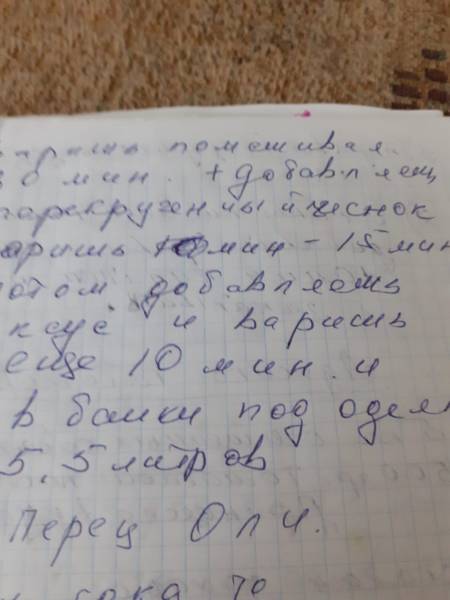 аришь помешивая
0 мин. + добавляещ
перекрученный чеснок
аришь 10 мин - 15 мин
потом добавляешь
ксус и варишь
еще 10 мин. и
в банки под одея
5.5 литров
Перец Оли.
сока то